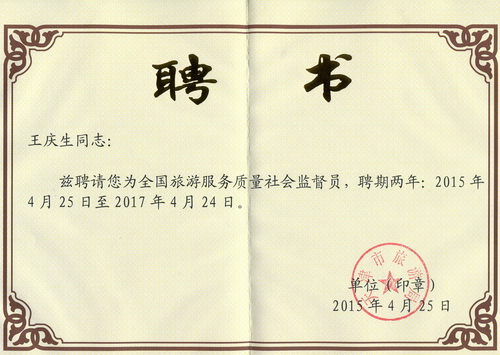 聘 书
王庆生同志：
兹聘请您为全国旅游服务质量社会监督员，聘期两年：2015年
4月25日至2017年4月24日。
天津市旅游局
单位（印章）
2015年4月25日